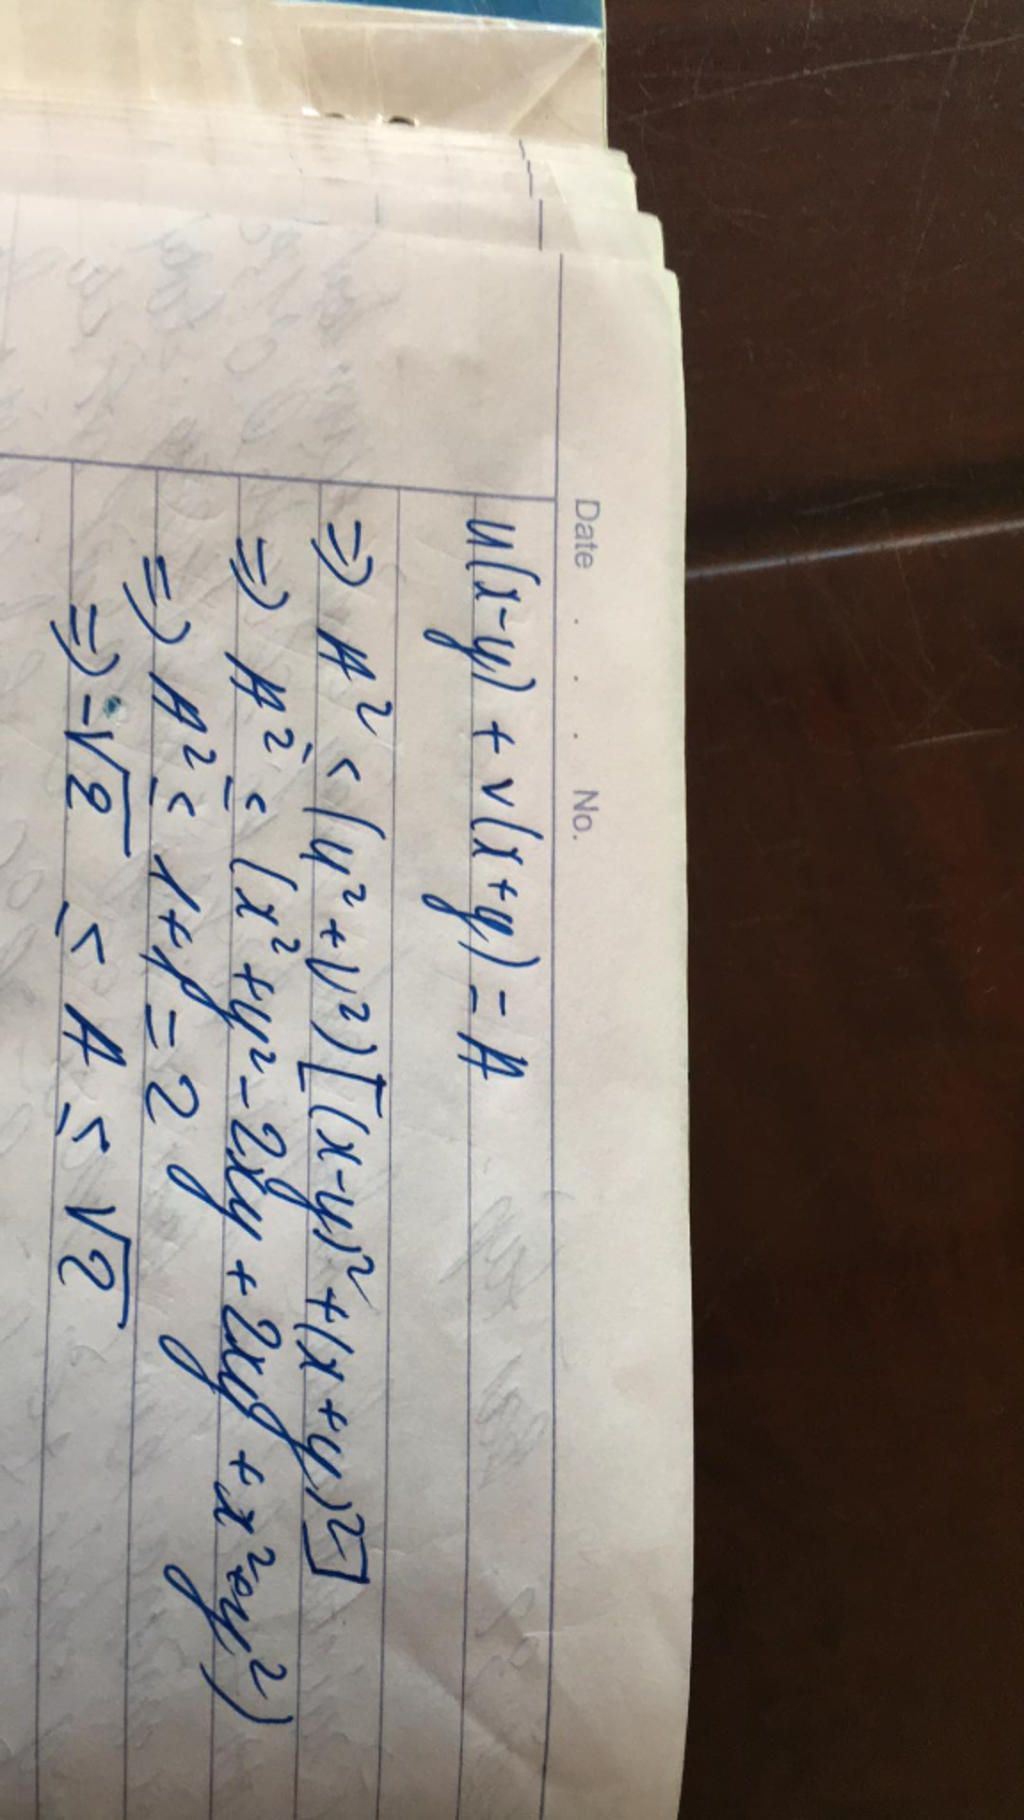 Date . . . No.
u(x-y) + v(x+y) = A
=) A² < (u² + v²) [(x-y)² + (x+y)²]
=) A² ≤ (x² + y² - 2xy + 2xy + x² + y²)
=) A² ≤ 1+1 = 2
=) -√2 ≤ A ≤ √2